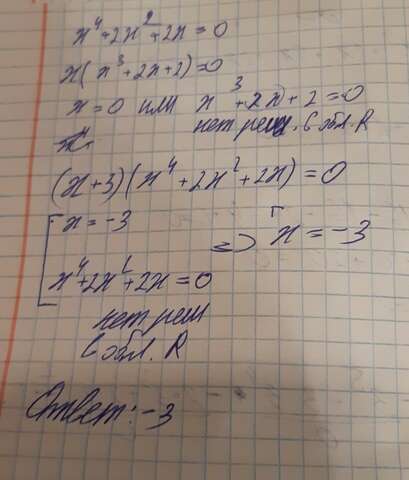 x⁴+2x²+2x=0
x(x³+2x+2)=0
x=0 или x³+2x+2=0
нет реш. в обл. R
(x+3)(x⁴+2x²+2x)=0
[x=-3 <=> x=-3
x⁴+2x²+2x=0
нет реш
в обл. R
Ответ: -3